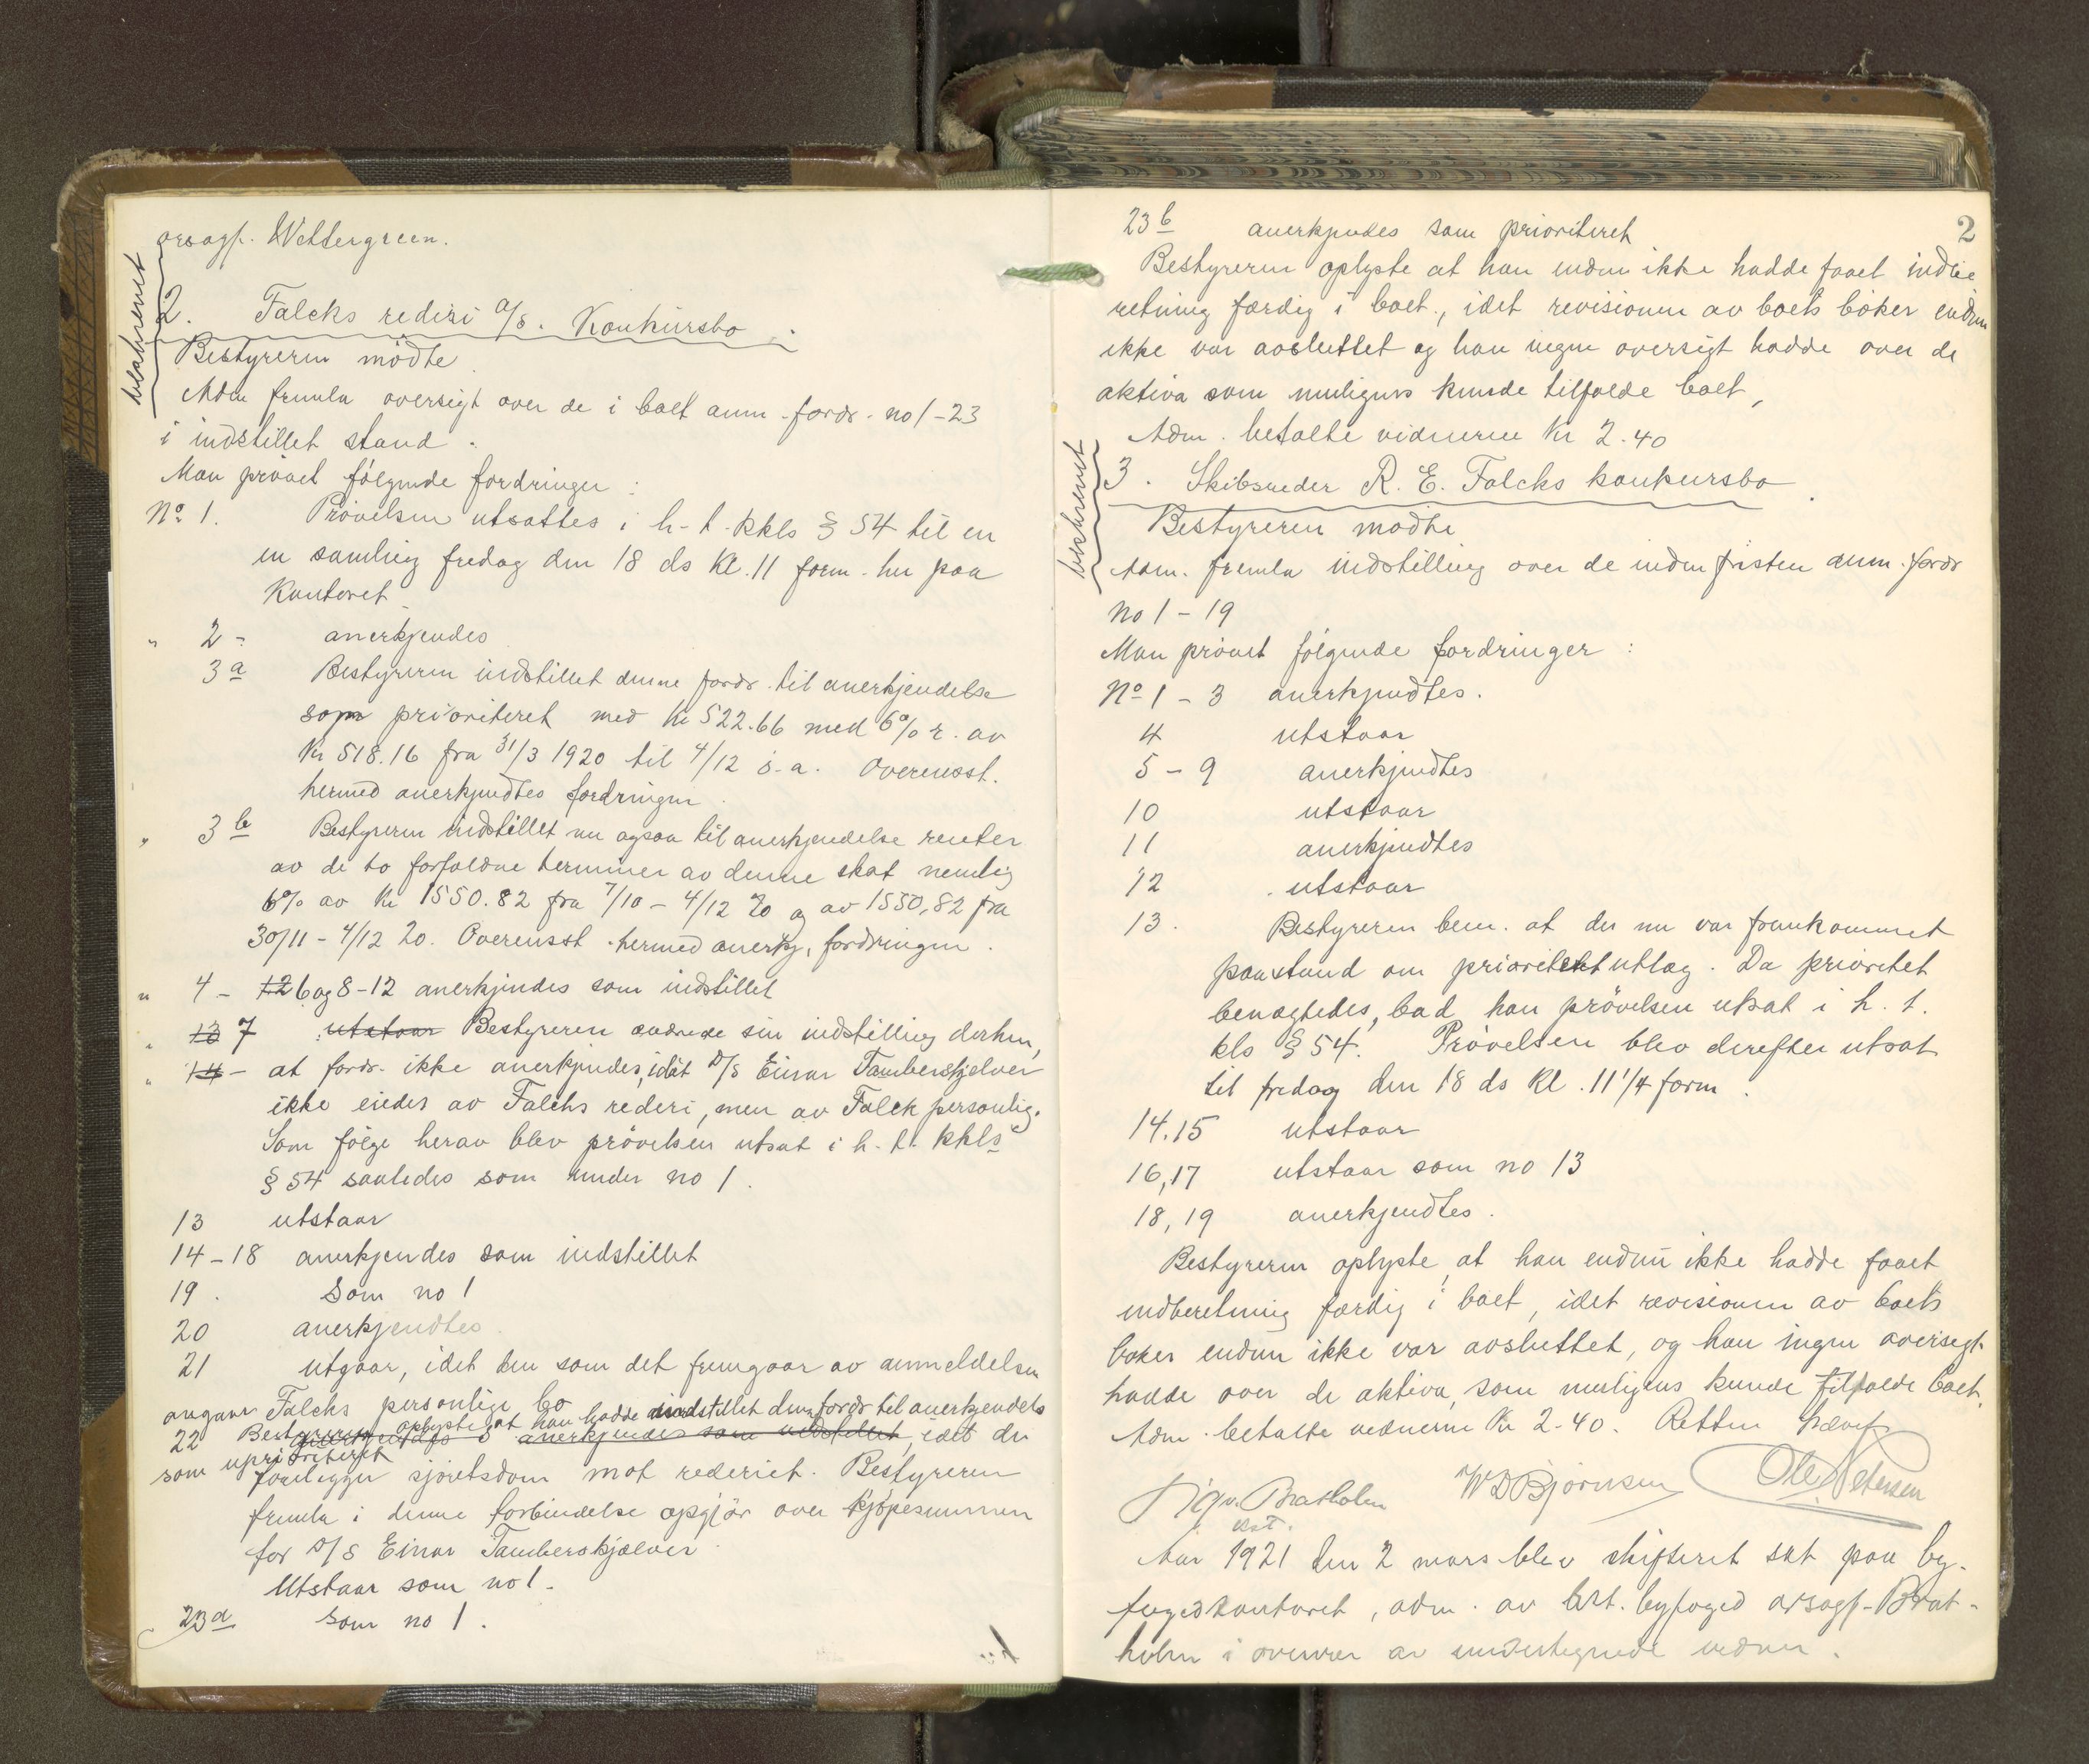 orsagf. Wettergreen.
beskrevet
2. Falcks rederi a/s. Konkursbo.
Bestyreren mödte
Adm fremla oversigt over de i boet anm. fordr. no 1-23
i indstillet stand.
Man prövet følgende fordringer:
No 1. Prövelsen utsattes i h.t. kkls § 54 til en
en samling fredag den 18 ds Kl. 11 form. her paa
Kontoret
" 2 - anerkjendes
3 a Bestyreren indstillet denne fordr. til anerkjendelse
som prioriteret med Kr 522.66 med 6% r. av
Kr 518.16 fra 31/3 1920 til 4/12 s.a. Overensst.
hermed anerkjendtes fordringen.
" 3 b Bestyreren indstillet nu ogsaa til anerkjendelse renter
av de to forfaldne terminer av denne skat nemlig
6% av Kr 1550.82 fra 7/10 - 4/12 20 og av 1550,82 fra
30/11 - 4/12 20. Overensst. hermed anerkj. fordringen.
" 4 - 12 6 og 8-12 anerkjendes som indstillet
" 13 7 utstaar Bestyreren ændrede sin indstilling derhen,
" 14 - at fordr. ikke anerkjendes, idet D/S Einar Tamberskjelver
ikke eiedes av Falcks rederi, men av Falck personlig.
Som følge herav blev prövelsen utsat i h.t. kkls
§ 54 saaledes som under no 1.
13 utstaar
14-18 anerkjendes som indstillet
19. Som no 1
20 anerkjendtes
21 utgaar, idet den som det fremgaar av anmeldelsen
angaar Falcks personlige bo
22 Bestyreren oplyste at han hadde indstillet denne fordr til anerkjendels
anerkjendes som indstillet, idet der
som uprioriteret
foreligger sjöretsdom mot rederiet. Bestyreren
fremla i denne forbindelse opgjör over kjøpesummen
for D/S Einar Tamberskjælver.
Utstaar som no 1.
23 a Som no 1.
2
23 b anerkjendes som prioriteret
Bestyreren oplyste at han endnu ikke hadde faaet indbe
retning færdig i boet, idet revisionen av boets böker endnu
ikke var avsluttet og han ingen oversigt hadde over de
aktiva som muligens kunde tilfalde boet,
Adm. betalte vidnerne Kr 2.40
beskrevet
3. Skibsreder R. E. Falcks konkursbo.
Bestyreren mödte
Adm. fremla indstilling over de inden fristen anm. fordr
no 1 - 19
Man prövet følgende fordringer:
No 1 - 3 anerkjendtes.
4 utstaar
5 - 9 anerkjendtes
10 utstaar
11 anerkjendtes
12 utstaar
13. Bestyreren bem. at der nu var fremkommet
paastand om prioritert utlæg. Da prioritet
benægtedes, bad han prövelsen utsat i h.t.
kls § 54. Prövelsen blev derefter utsat
til fredag den 18 ds Kl. 11 1/4 form.
14.15 utstaar
16,17 utstaar som no 13
18, 19 anerkjendtes.
Bestyreren oplyste, at han endnu ikke hadde faaet
indberetning færdig i boet, idet revisionen av boets
bøker endnu ikke var avsluttet, og han ingen oversigt
hadde over de aktiva, som muligens kunde tilfalde boet.
Adm. betalte vidnerne Kr 2-40. Retten hævet
Sigv. Bratholm W D Bjørnsen Ole Petersen
kst.
Aar 1921 den 2 mars blev skifteret sat paa by-
fogedkontoret, adm. av kst. byfoged orsagf. Brat-
holm i overvær av undertegnede vidner.